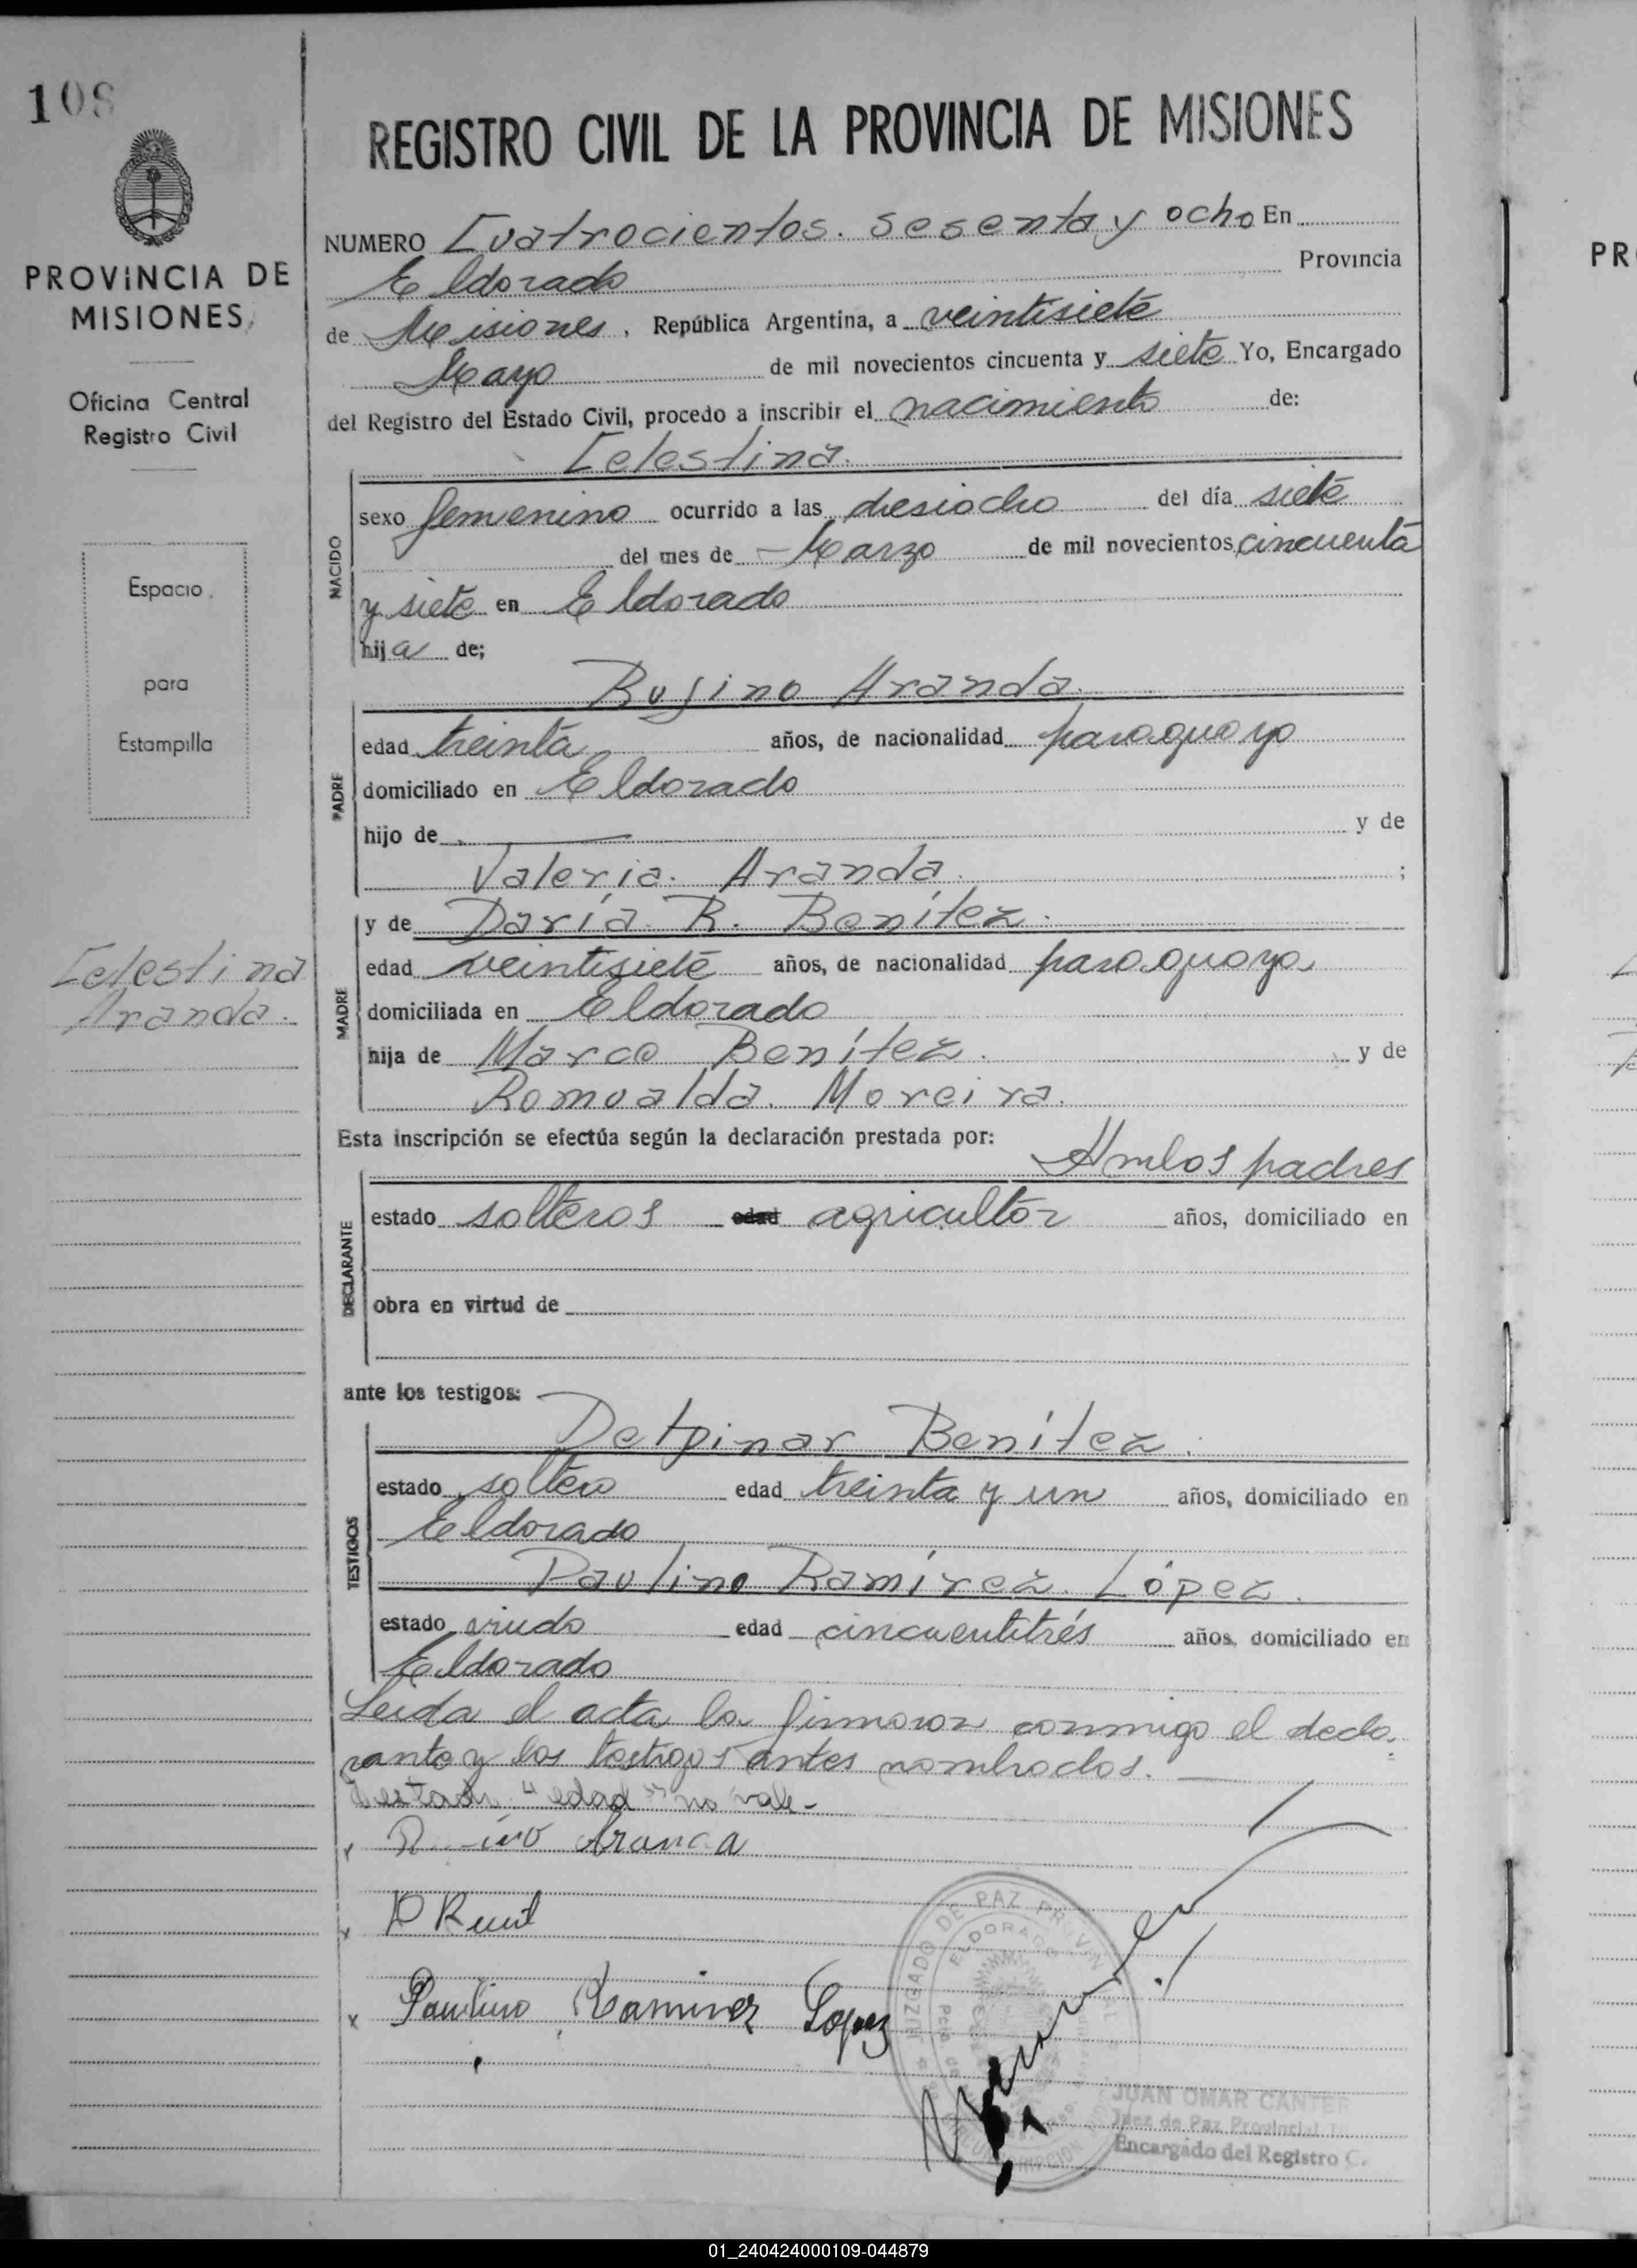 108
PROVINCIA DE
MISIONES
Oficina Central
Registro Civil
Espacio
para
Estampilla
Celestina
Aranda.
REGISTRO CIVIL DE LA PROVINCIA DE MISIONES
NUMERO Cuatrocientos. sesenta y ocho En
Eldorado Provincia
de Misiones, República Argentina, a veintisiete
Mayo de mil novecientos cincuenta y siete Yo, Encargado
del Registro del Estado Civil, procedo a inscribir el nacimiento de:
Celestina.
NACIDO
sexo femenino ocurrido a las diesiocho del día siete
del mes de Marzo de mil novecientos cincuenta
y siete en Eldorado
hija de;
Rufino Aranda.
PADRE
edad treinta años, de nacionalidad paraguayo
domiciliado en Eldorado
hijo de — y de
Valeria. Aranda. ;
y de Daría R. Benítez.
MADRE
edad veintisiete años, de nacionalidad paraguaya
domiciliada en Eldorado
hija de Marco Benítez. y de
Romualda. Moreira.
Esta inscripción se efectúa según la declaración prestada por:
Ambos padres
DECLARANTE
estado solteros edad agricultor años, domiciliado en
obra en virtud de
ante los testigos:
Benítez.
TESTIGOS
estado soltero edad treinta y un años, domiciliado en
Eldorado
Paulino Ramírez. López.
estado viudo edad cincuentitrés años, domiciliado en
Eldorado
Leida el acta la firmaron conmigo el decla-
rante y los testigos antes nombrados.
Testado: "edad" no vale-
Aranda
Paulino Ramirez Lopez
JUZGADO DE PAZ PROVINCIAL
ELDORADO
JUAN OMAR CANTER
Juez de Paz Provincial
Encargado del Registro C.
01_240424000109-044879